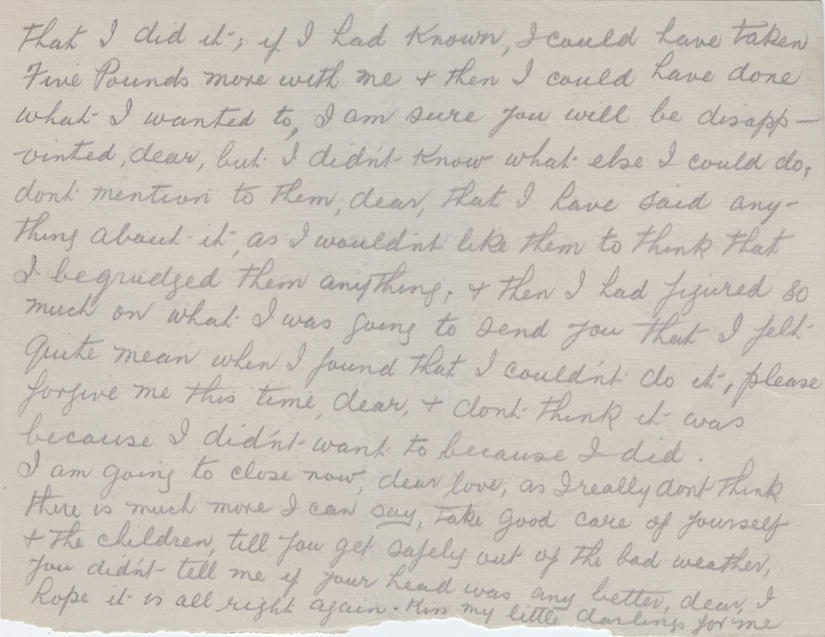 that I did it; if I had known, I could have taken
Five Pounds more with me & then I could have done
what I wanted to, I am sure you will be disapp-
ointed, dear, but I didn't know what else I could do,
dont mention to them, dear, that I have said any-
thing about it, as I wouldn't like them to think that
I begrudged them anything, & then I had figured so
much on what I was going to send you that I felt
quite mean when I found that I couldn't do it, please
forgive me this time, dear, & dont think it was
because I didn't want to because I did.
I am going to close now, dear love, as I really dont think
there is much more I can say, take good care of yourself
& the children, till you get safely out of the bad weather,
you didn't tell me if your head was any better, dear, I
hope it is all right again - Kiss my little darlings for me